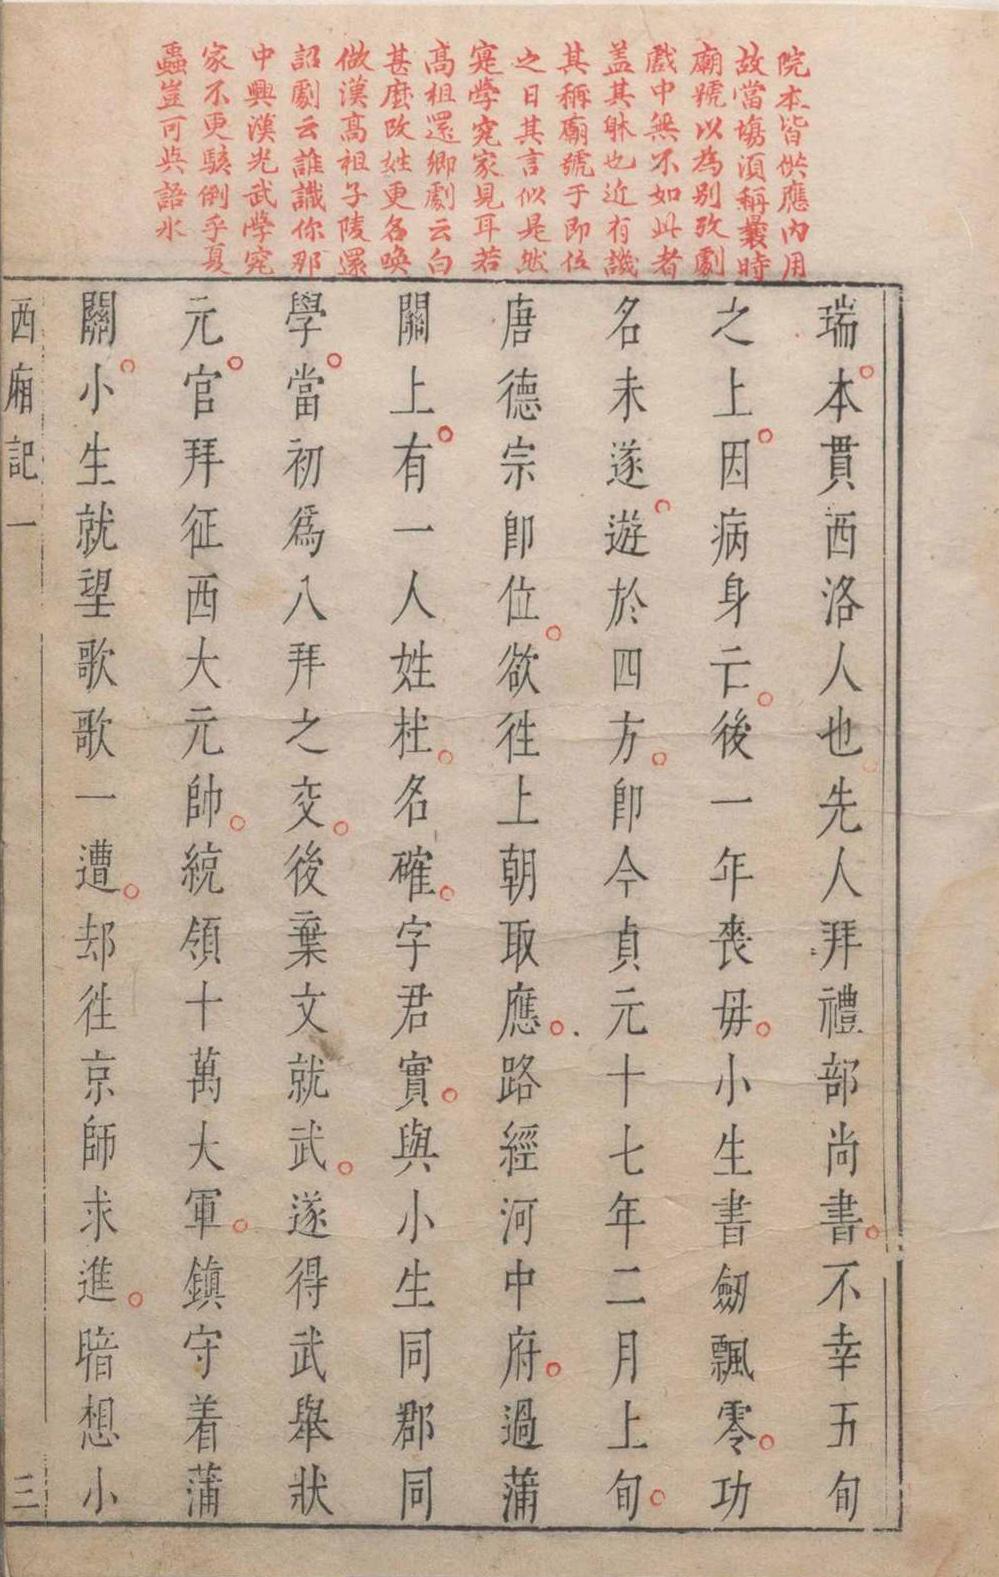 院本皆供應內用
故當塲須稱異時
廟號以為别攷劇
戲中無不如此者
盖其躰也近有譏
其稱廟號于即位
之日其言似是然
寔學究家見耳若
高祖還鄉劇云白
甚麽改姓更名喚
做漢高祖子陵還
詔劇云誰識你那
中興漢光武學究
家不更駭倒乎夏
蟲豈可與語氷
瑞本貫西洛人也先人拜禮部尚書不幸五旬
之上因病身亡後一年喪毋小生書劒飄零功
名未遂遊於四方卽今貞元十七年二月上旬
唐德宗卽位欲徃上朝取應路經河中府過蒲
關上有一人姓杜名確字君實與小生同郡同
學當初爲八拜之交後棄文就武遂得武舉狀
元官拜征西大元帥統領十萬大軍鎮守着蒲
關小生就望歌歌一遭却徃京師求進暗想小
西廂記一
三